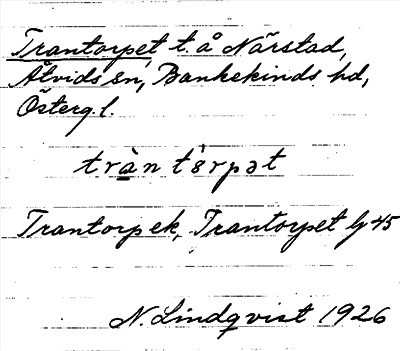 Trantorpet t. å Närstad,
Åtvids sn, Bankekinds hd,
Österg. l.
tràn tɵ́rpət
Trantorp ek, Trantorpet lj 45
N. Lindqvist 1926